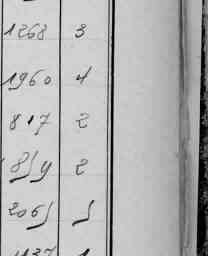 1268 3
1960 4
817 2
859 2
2065 5
1137 1